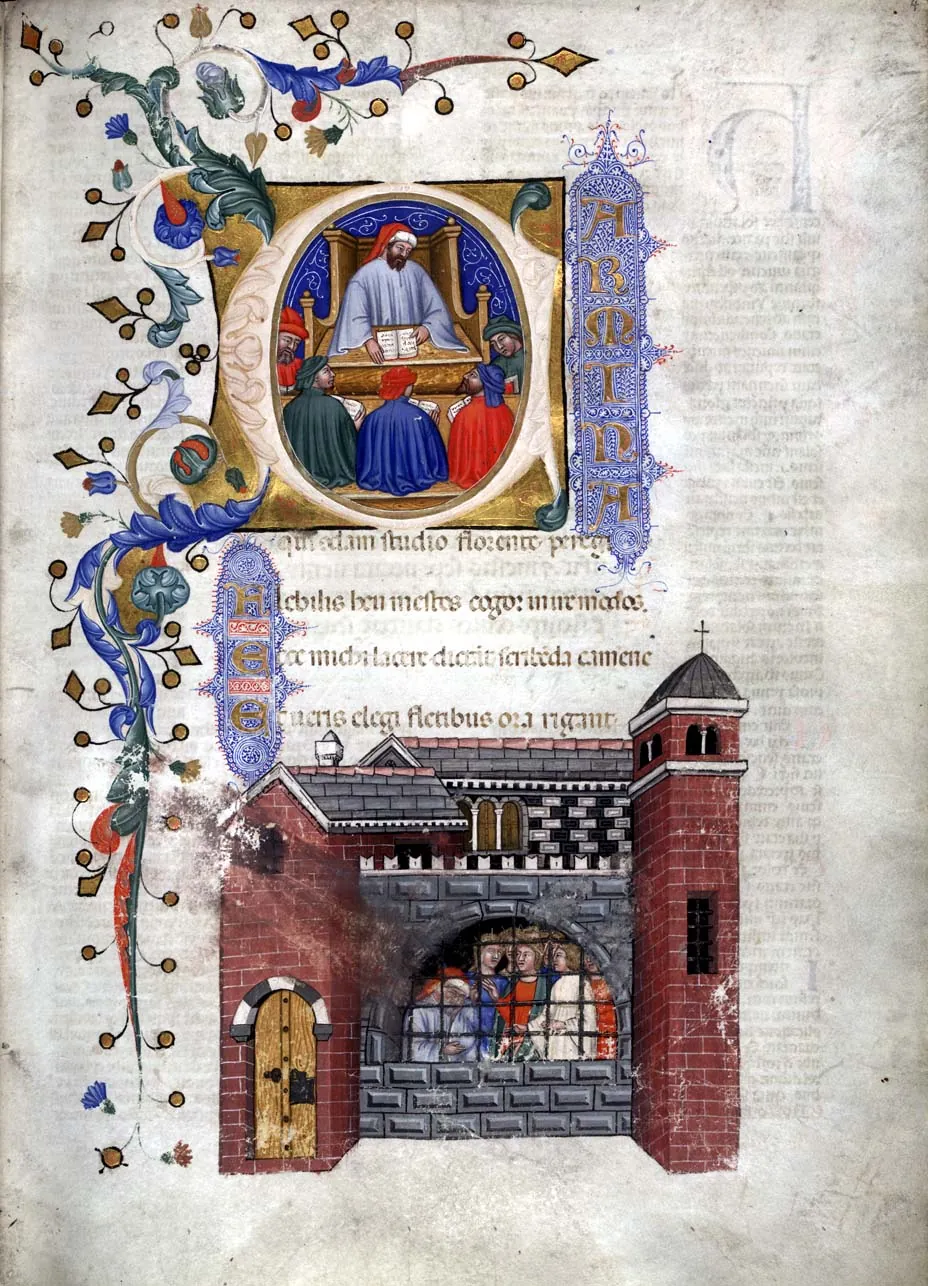 4
CARMINA
qui q̄dam studio florente peregi
Flebilis heu mestos cogor inire modos.
Ecce michi lacere dictāt scribēda camene
Et ueris elegi fletibus ora rigant.